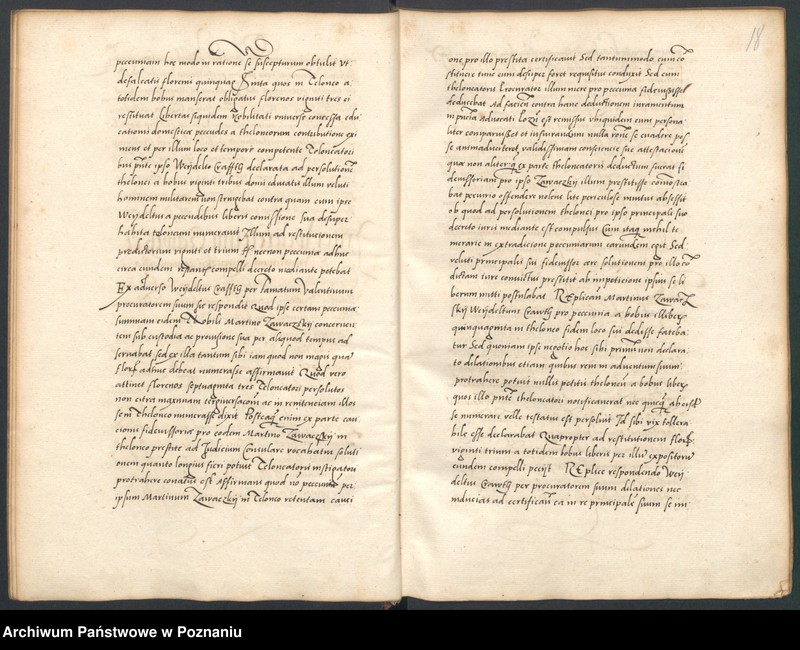 pecuniam hoc modo in ratione se suscepturum obtulit ut
defalcatis florenis quinquaginta quos in Teloneo a
totidem bobus manserat obligatus florenos viginti tres ei
restituat Libertas siquidem Nobilitati universe concessa edu
cationis domestice pecudes a theloneorum contributione exi
muntur per illum loco et tempore competente Teloneatori
bus per ipso Weijdelto Craffth declarata ad persolutione
thelonei a bobus viginti tribus domi educatis illum veluti
hominem militarem non stringebat contra quam cum ipse
Weijdeltus a pecudibus liberis comissione sua desuper
habita teloneum numeravit Illum ad restitutionem
predictorum viginti et trium ff necnon pecunia adhuc
circa eundem restant compelli decreto mediante petebat
Ex adverso Weijdeltus Craffth per famatum Valentinum
procuratorem suum sic respondit Quod ipse certam pecunia
summam eidem Nobili Martino Zawaczkij concernen
tem sub custodia ac provisione sua per aliquod tempus ad
servabat sed ex illa tantum sibi iam quod non magis qua
flor adhuc debeat numerasse affirmavit Quod vero
attinet florenos septuaginta tres Teloneatori persolutos
non citra maximam tergiversacionem ac renitenciam illos
se in Theloneo numerasse dixit Postea enim ex parte cau
cionis fideiussorie pro eodem Martino Zawaczkij in
theloneo prestite ad Iudicium Consulare vocabatur soluti
onem quanto longius fieri potuit Teloneatoris instigatori
protrahere conatus est affirmans quod non pecunia per
ipsum Martinum Zawaczkij in Teloneo retentam cauci
18
one pro illo prestita certificavit Sed tantummodo eum co
stituere tunc cum desuper foret requisitus conduxit Sed cum
theloneatoris Procurator illum mere pro pecunia fideiussisse
deducebat Ad faciem contra hanc deductionem iuramentum
in pncia advocati Loci est remissus ubi quidem cum persona
liter comparuisset et iusiurandum nulla rone se evadere pos
se animadverteret validissimam consciencie sue attestacione
qua non aliter ex parte theloneatoris deductum fuerat fi
deiussoriam pro ipso Zawaczkij illum prestitisse comostra
bat periurio offendere nolens lite periculose invitus absessit
ob quod ad persolutionem thelonei pro ipso principali suo
decreto iuris mediante est compulsus Cum itaque nichil te
merarie in extradicione pecuniarum earundem egit Sed
veluti principalis sui fideiussor arc solutionem pro illo co
dictam iure convictus prestitit ab impeticione ipsius se li
berum mitti postulabat REplicans Martinus Zawacz
kij Weijdeltum Crawth pro pecunia a bobus illiberis
quinquaginta in theloneo fidem loco sui dedisse fateba
tur Sed quoniam ipse negotio hoc sibi primum non declara
to dilationibus etiam quibus rem in adventum suum
protrahere potuit nullis petitis theloneum a bobus liberis
quos illo pnte theloneatori notificaverat nec quicquam ab eisdem
se numerare velle testatus est persolvit Id sibi vix tollera
bile esse declarabat Quapropter ad restitutionem flor
viginti trium a totidem bobus liberis per illum expositoru
eundem compelli peciit REplice respondendo Weij
deltus Crawth per procuratorem suum dilationes nec
inducias ad certificandum ea in re principalem suum se im
Archiwum Państwowe w Poznaniu